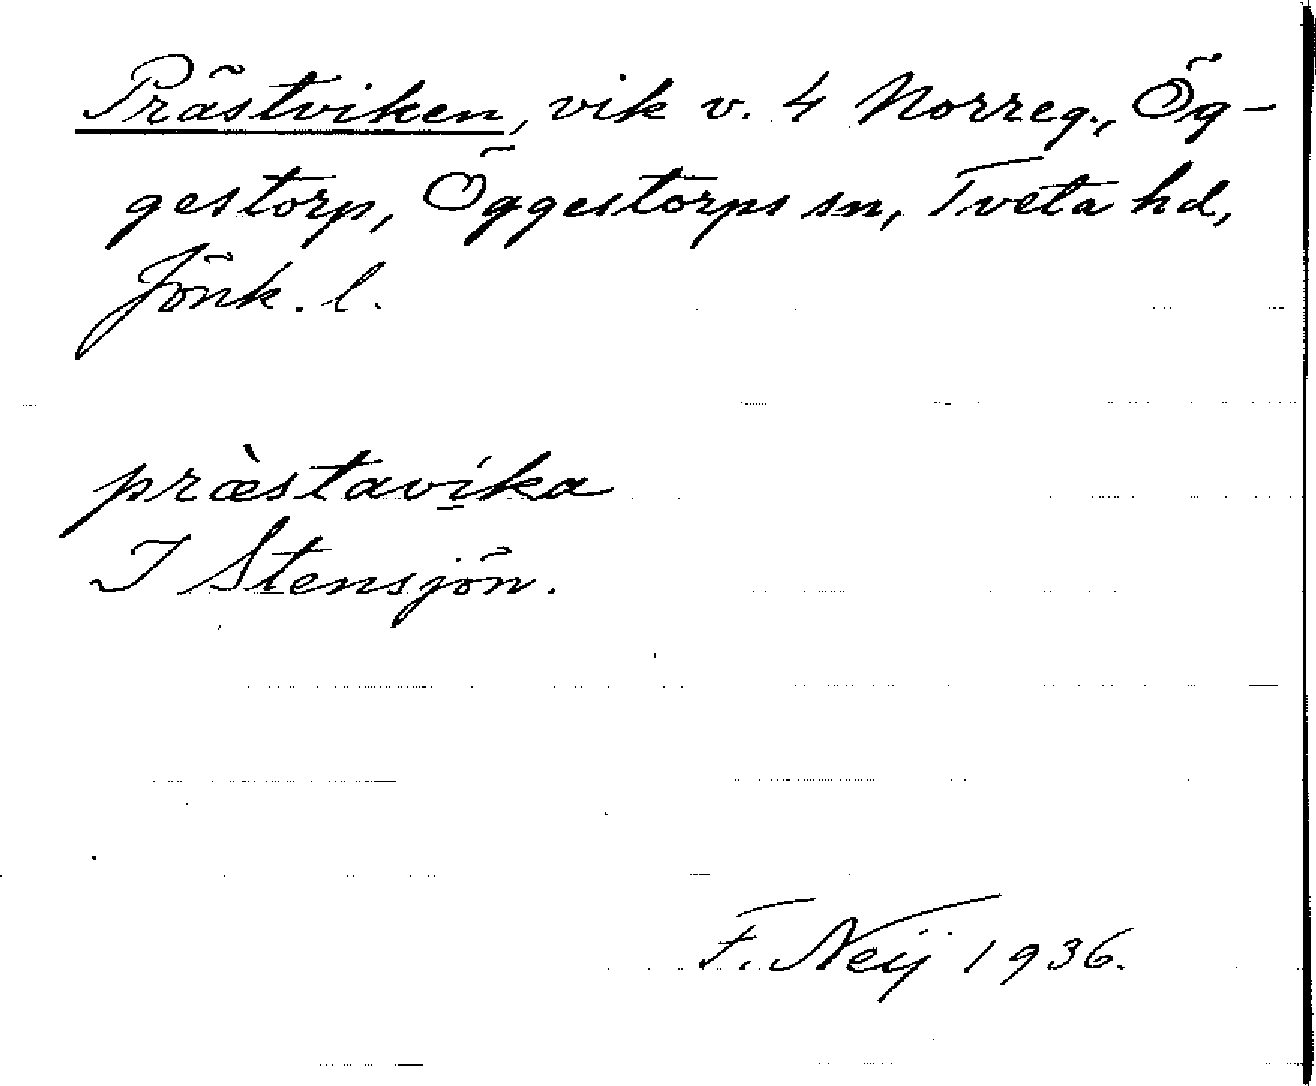 Prästviken, vik v. 4 Norreg., Ög-
gestorp, Öggestorps sn, Tveta hd,
Jönk. l.
præ̀stavi̠ka
I Stensjön.
F. Neij 1936.